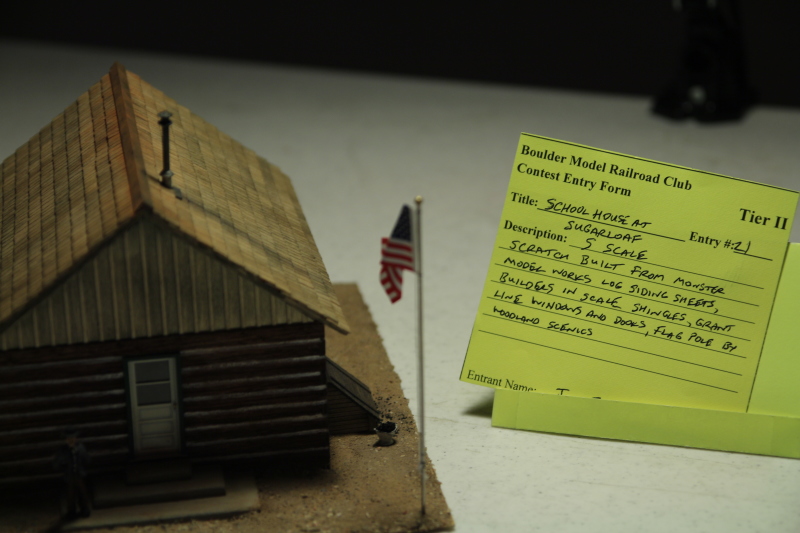 Boulder Model Railroad Club
Contest Entry Form
Tier II
Title: SCHOOL HOUSE AT Entry #: 21
SUGARLOAF
Description: S SCALE
SCRATCH BUILT FROM MONSTER
MODEL WORKS LOG SIDING SHEETS,
BUILDERS IN SCALE SHINGLES, GRANT
LINE WINDOWS AND DOORS, FLAG POLE BY
WOODLAND SCENICS
Entrant Name: